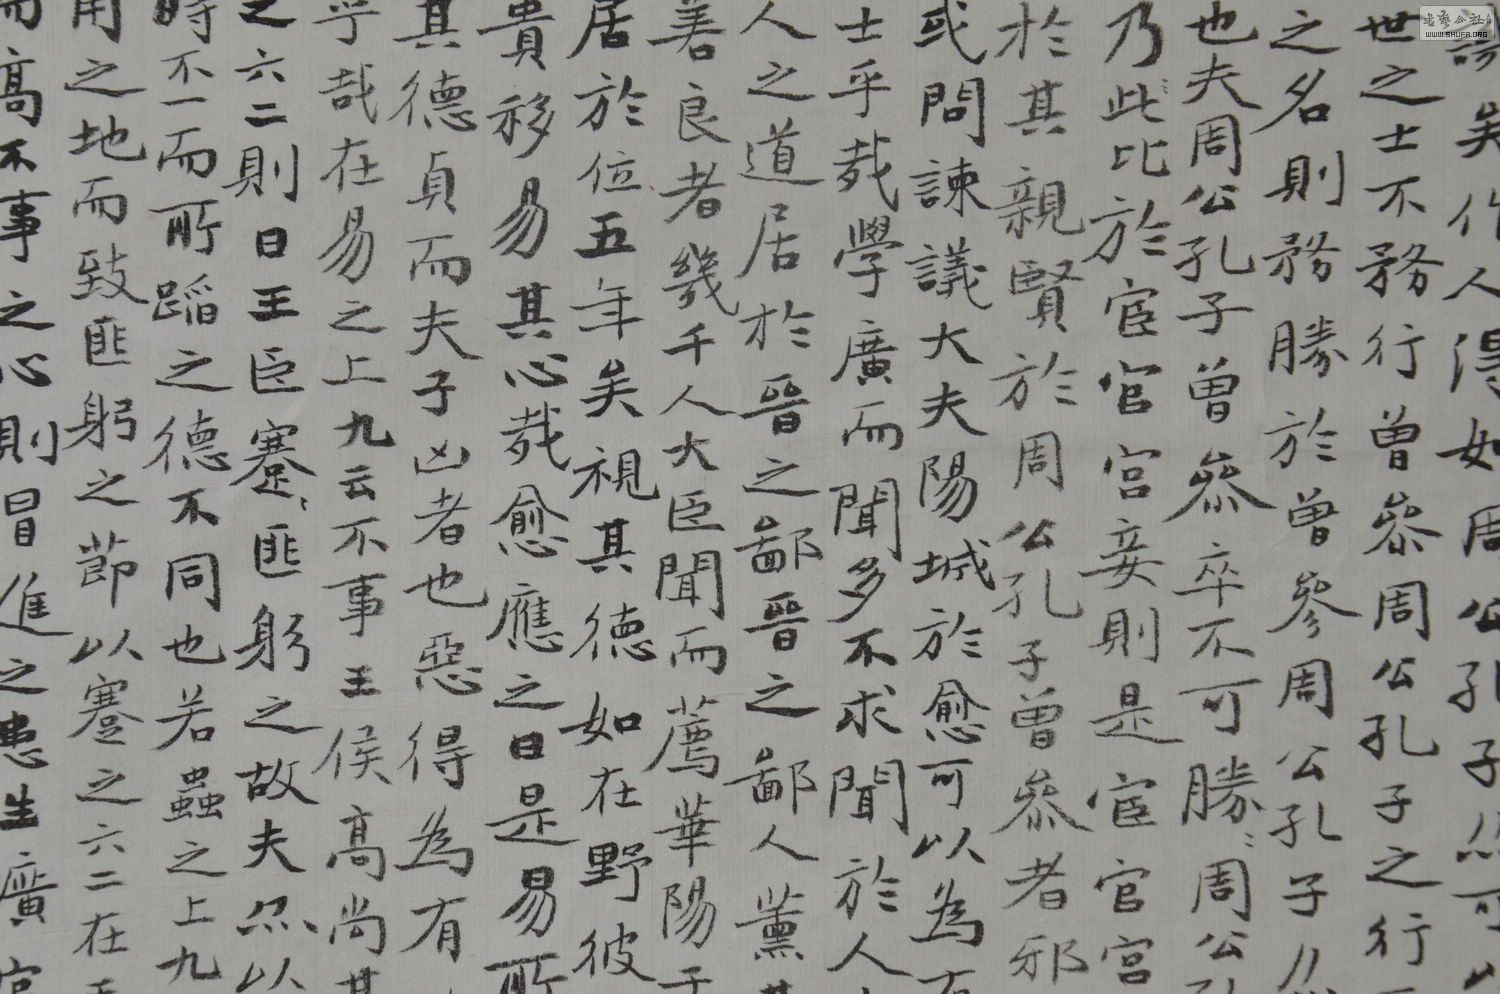 諱矣作人得如周公孔子亦可以
世之士不務行曾參周公孔子之行
之名則務勝於曾參周公孔子
也夫周公孔子曾參卒不可勝勝周公孔
乃此比於宦官宮妾則是宦官宮
於其親賢於周公孔子曾參者邪
或問諫議大夫陽城於愈可以為有
士乎哉學廣而聞多不求聞於人
人之道居於晉之鄙晉之鄙人薰其
善良者幾千人大臣聞而薦華陽子
居於位五年矣視其德如在野彼
貴移易其心哉愈應之曰是易所
其德貞而夫子凶者也惡得為有
乎哉在易之上九云不事王侯高尚其
之六二則曰王臣蹇蹇匪躬之故夫亦以
時不一而所蹈之德不同也若蠱之上九
用之地而致匪躬之節以蹇之六二在王
而高不事之心則冒進之患生曠官
書藝公社
WWW.SHUFA.ORG